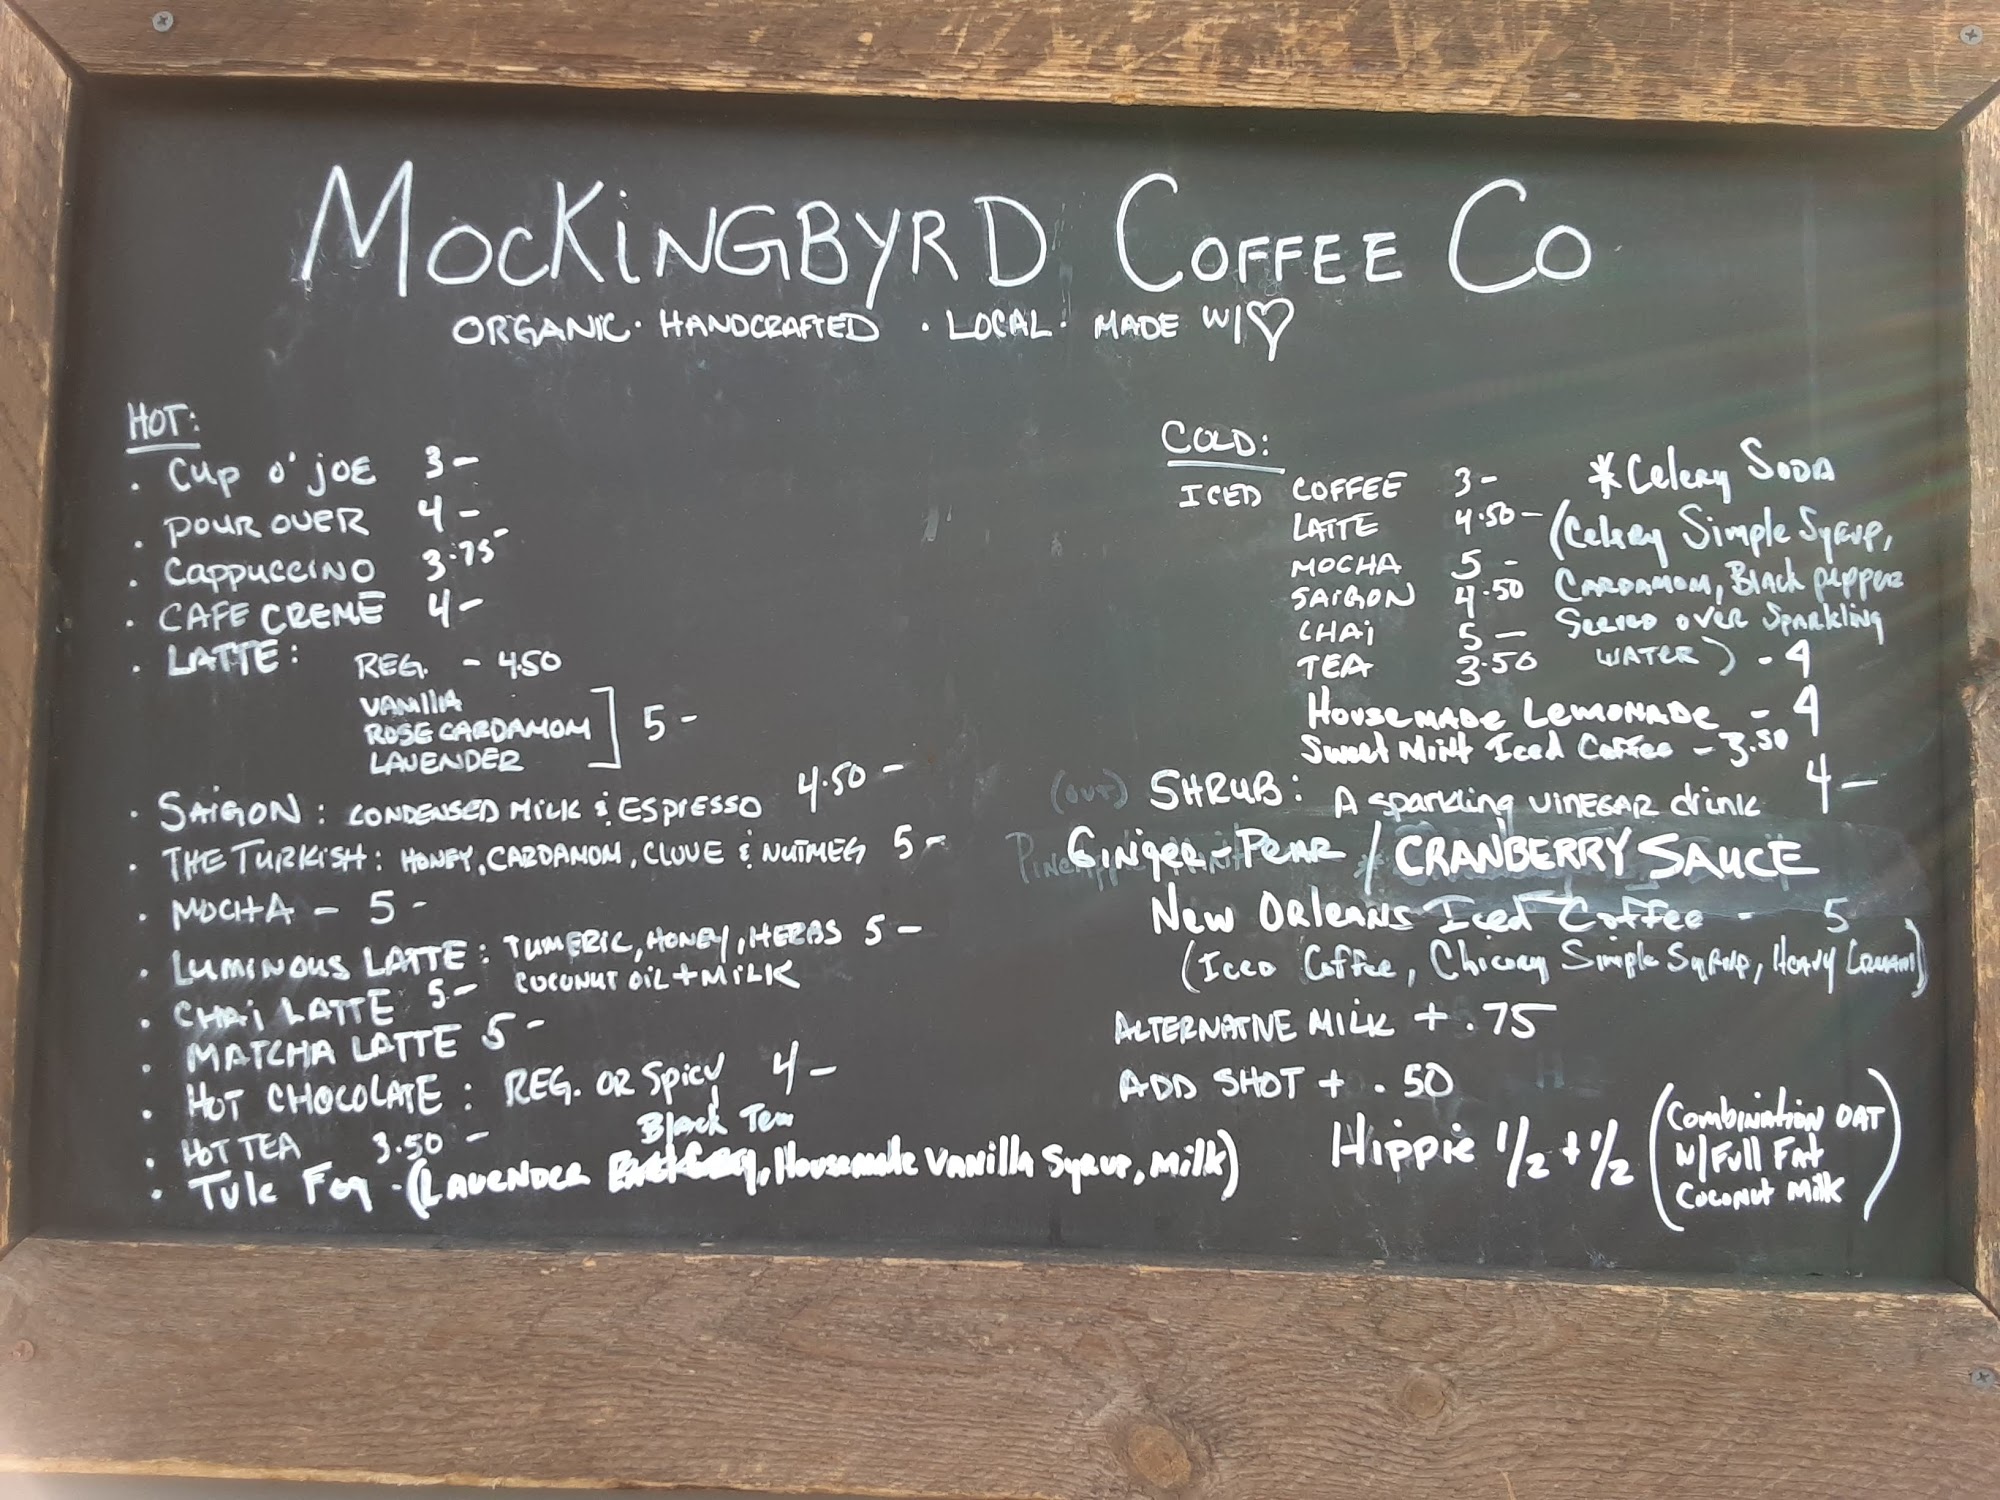 MOCKINGBYRD COFFEE CO
ORGANIC · HANDCRAFTED · LOCAL · MADE W/♡
HOT:
· CUP O' JOE 3 –
· POUR OVER 4 –
· CAPPUCCINO 3.75 –
· CAFE CREME 4 –
· LATTE: REG. – 4.50
VANILLA
ROSE CARDAMOM 5 –
LAVENDER
· SAIGON: CONDENSED MILK & ESPRESSO 4.50 –
· THE TURKISH: HONEY, CARDAMOM, CLOVE & NUTMEG 5 –
· MOCHA – 5 –
· LUMINOUS LATTE: TUMERIC, HONEY, HERBS 5 –
COCONUT OIL + MILK
· CHAI LATTE 5 –
· MATCHA LATTE 5 –
· HOT CHOCOLATE: REG. OR SPICY 4 –
· HOT TEA 3.50 –
Black Tea
· TULE FOG – (LAVENDER , Housemade Vanilla Syrup, Milk)
COLD:
ICED COFFEE 3 –
LATTE 4.50 –
MOCHA 5 –
SAIGON 4.50
CHAI 5 –
TEA 3.50
*Celery SODA
(Celery Simple Syrup,
CARDAMOM, Black pepper
Served over Sparkling
WATER) – 4
HOUSEMADE LEMONADE – 4
Sweet Mint Iced Coffee – 3.50
(OUT) SHRUB: A sparkling VINEGAR drink 4 –
Ginger – Pear / CRANBERRY SAUCE
NEW ORLEANS Iced Coffee – 5
(Iced Coffee, Chicory Simple Syrup, Heavy Cream)
ALTERNATIVE MILK + .75
ADD SHOT + .50
Hippie 1/2 + 1/2 (COMBINATION OAT
W/ Full Fat
Coconut Milk)